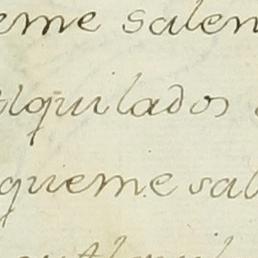 eme salen
alquilados
queme sal